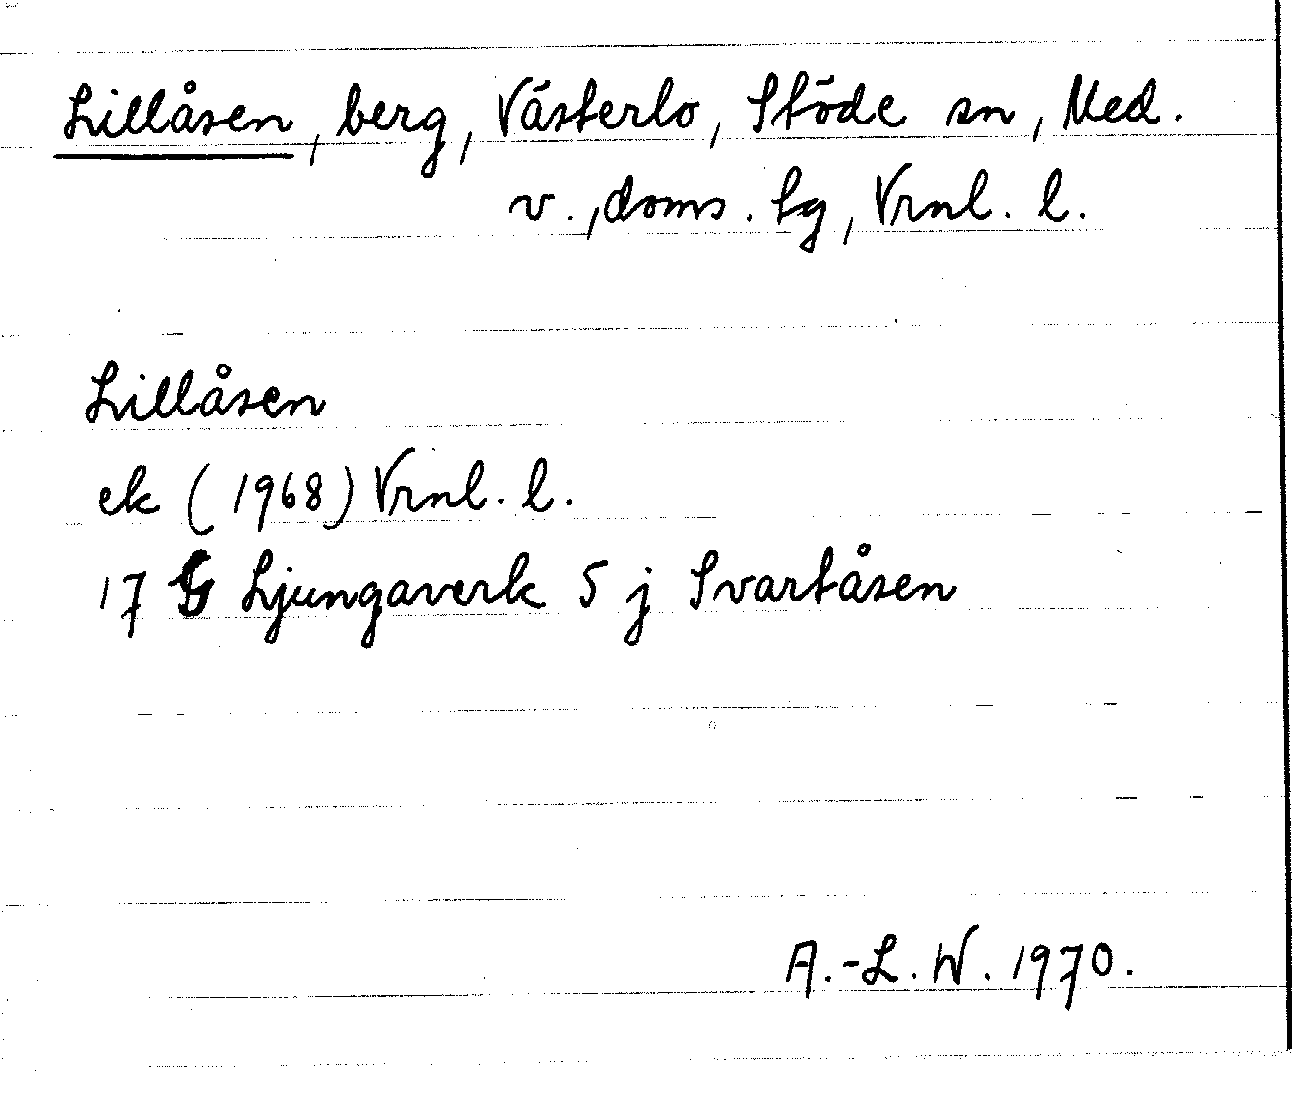 Lillåsen, berg, Västerlo, Stöde sn, Med.
v., doms. hg, Vrnl. l.
Lillåsen
ek (1968) Vrnl. l.
17 G Ljungaverk 5 j Svartåsen
A.-L. W. 1970.